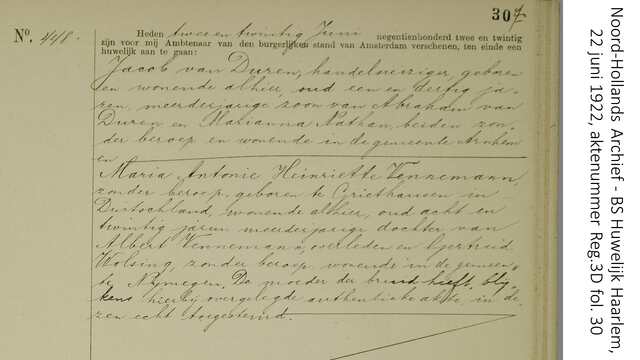 307
Nº. 448.
Heden twee en twintig Juni negentienhonderd twee en twintig
zijn voor mij Ambtenaar van den burgerlijken stand van Amsterdam verschenen, ten einde een
huwelijk aan te gaan:
Jacob van Duren, handelsreiziger, geboren
en wonende alhier, oud een en dertig ja-
ren, meerderjarige zoon van Abraham van
Duren en Marianna Nathan, beiden zon-
der beroep en wonende in de gemeente Arnhem
en
Maria Antonie Heinriette Vennemann,
zonder beroep, geboren te Griethausen in
Duitschland, wonende alhier, oud acht en
twintig jaren meerderjarige dochter van
Albert Vennemann, overleden en Gertrud
Wolsing, zonder beroep, wonende in de gemeen-
te Nijmegen. De moeder der bruid heeft blij-
kens hierbij overgelegde authentieke akte, in de-
zen echt toegestemd.
Noord-Hollands Archief - BS Huwelijk Haarlem,
22 juni 1922, aktenummer Reg.3D fol. 30